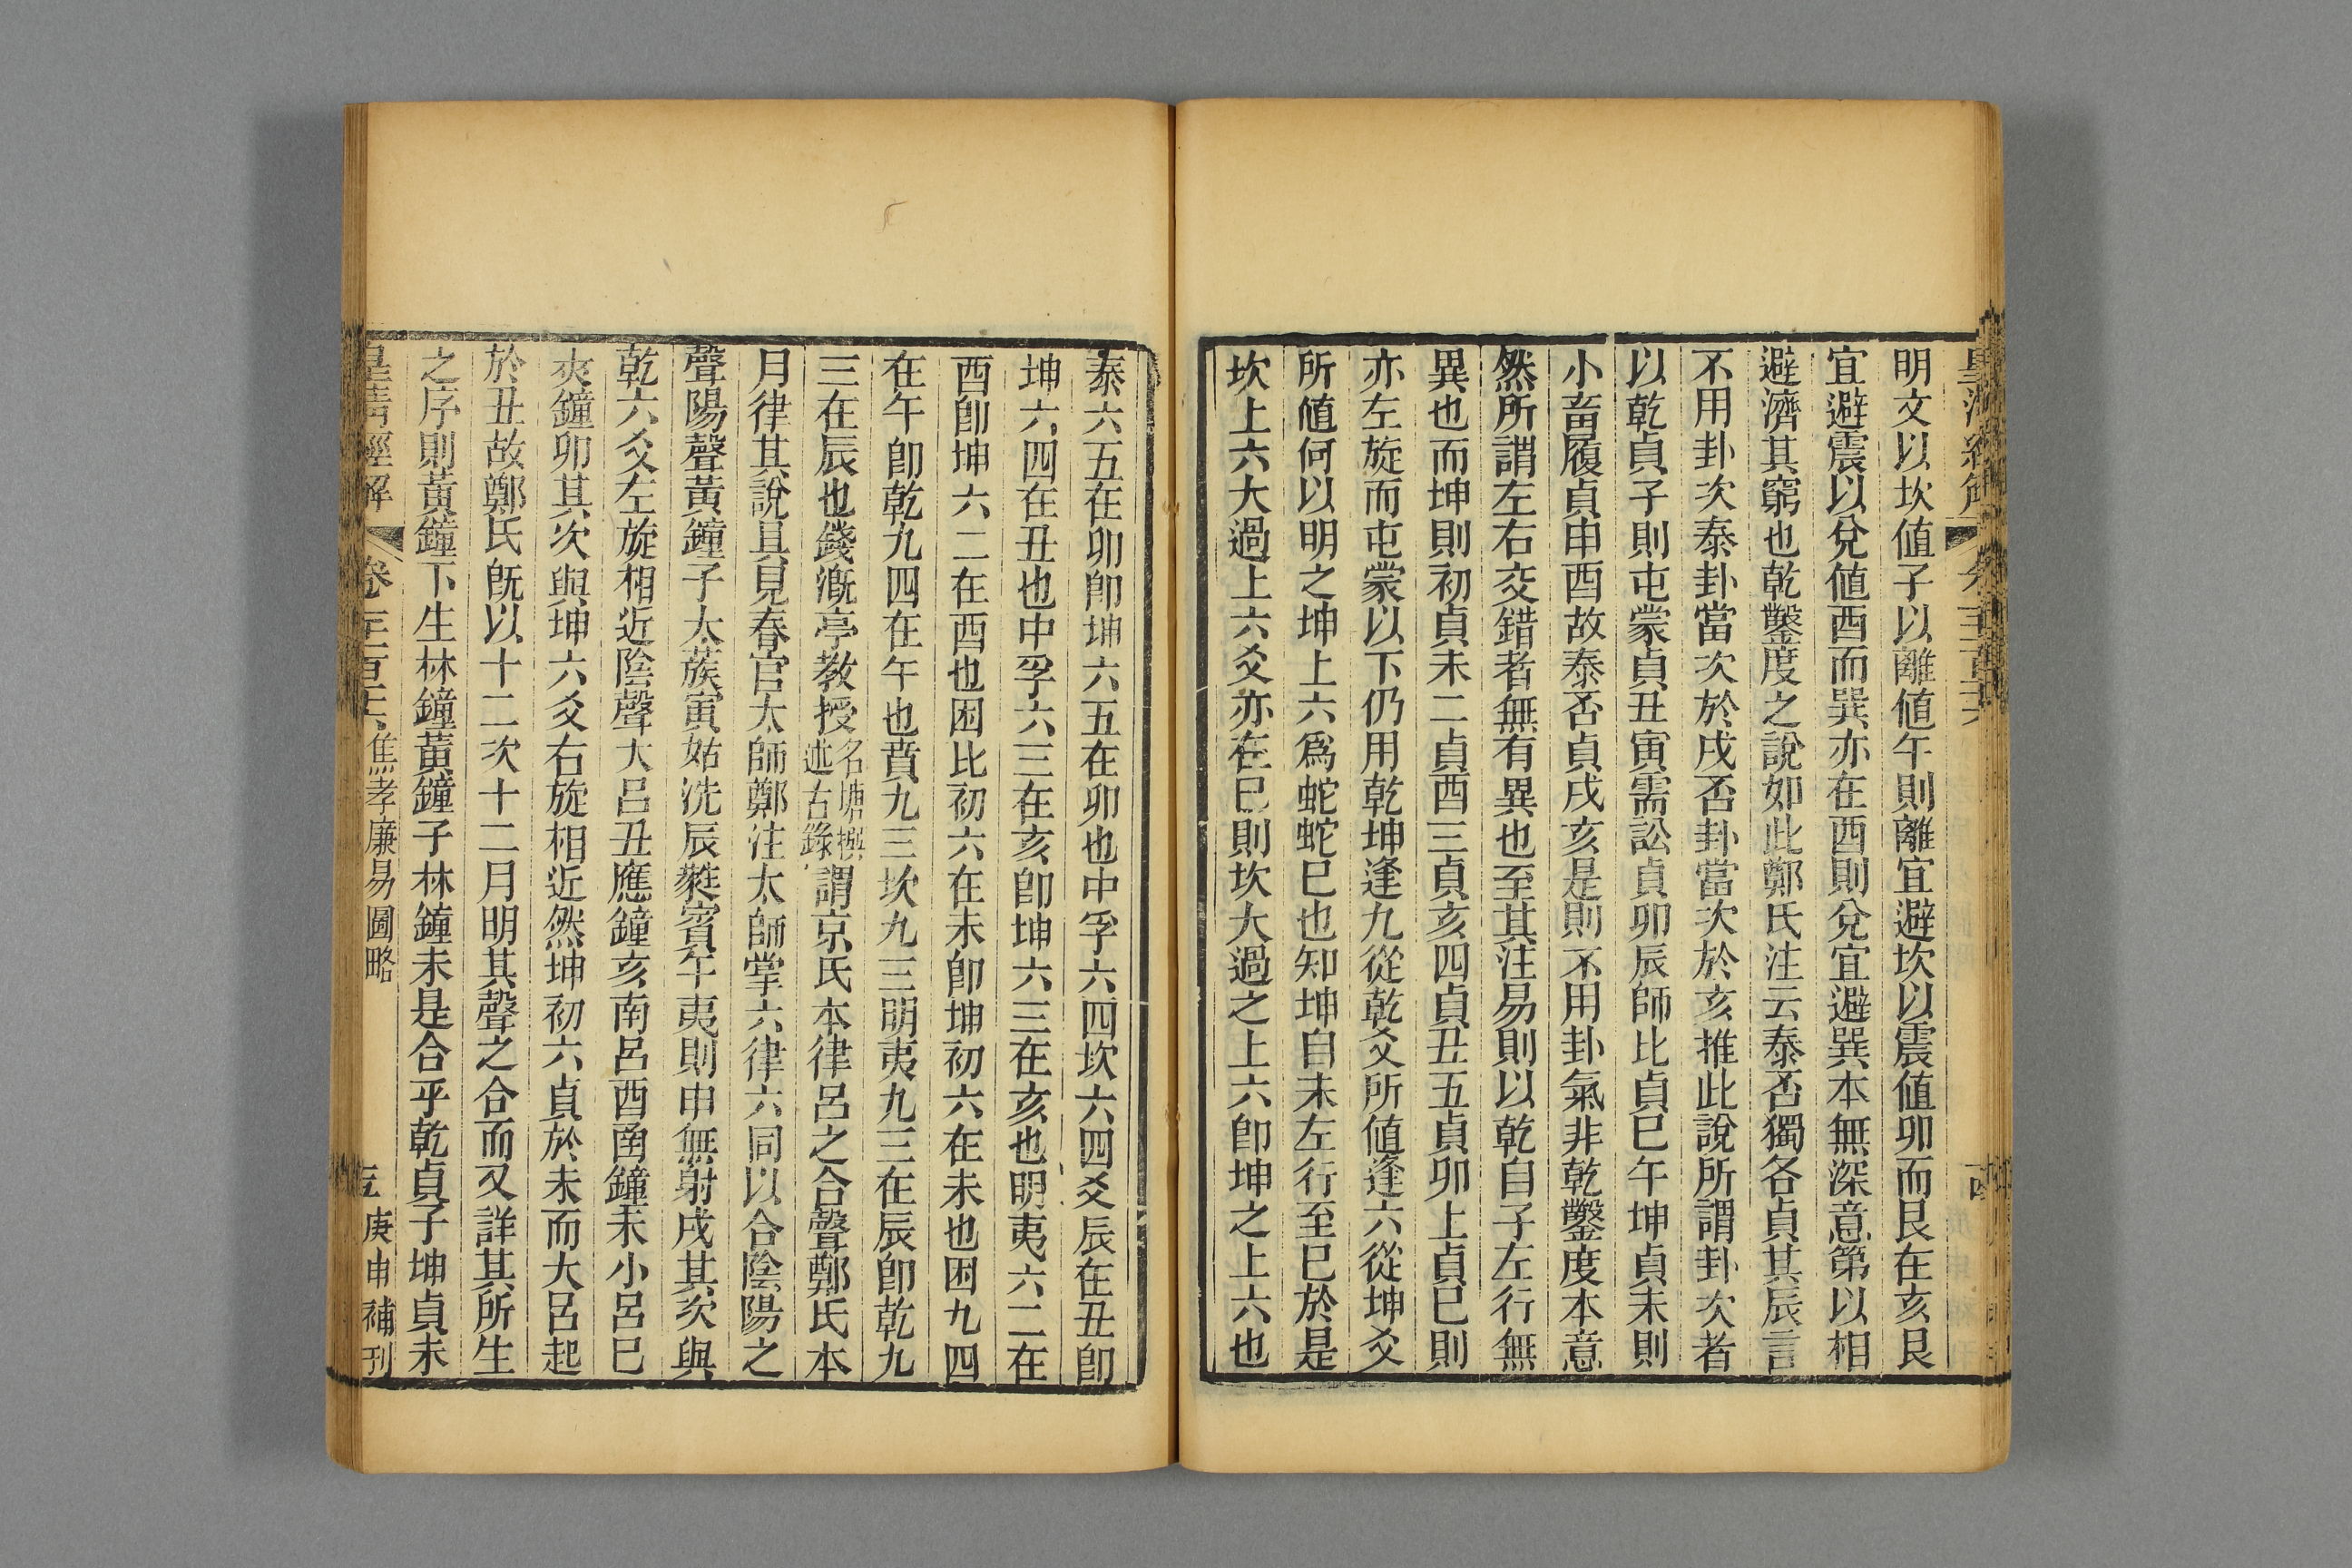 明文以坎值子以離值午則離宜避坎以震值卯而艮在亥艮
宜避震以兌值酉而巽亦在酉則兌宜避巽本無深意第以相
避濟其窮也乾鑿度之說如此鄭氏注云泰否獨各貞其辰言
不用卦次泰卦當次於戌否卦當次於亥推此說所謂卦次者
以乾貞子則屯蒙貞丑寅需訟貞卯辰師比貞巳午坤貞未則
小畜履貞申酉故泰否貞戌亥是則不用卦氣非乾鑿度本意
然所謂左右交錯者無有異也至其注易則以乾自子左行無
異也而坤則初貞未二貞酉三貞亥四貞丑五貞卯上貞巳則
亦左旋而屯蒙以下仍用乾坤逢九從乾爻所值逢六從坤爻
所值何以明之坤上六為蛇蛇巳也知坤自未左行至巳於是
坎上六大過上六爻亦在巳則坎大過之上六卽坤之上六也
泰六五在卯卽坤六五在卯也中孚六四坎六四爻辰在丑卽
坤六四在丑也中孚六三在亥卽坤六三在亥也明夷六二在
酉卽坤六二在酉也困比初六在未卽坤初六在未也困九四
在午卽乾九四在午也賁九三坎九三明夷九三在辰卽乾九
三在辰也錢漑亭教授名塘撰述古錄謂京氏本律呂之合聲鄭氏本
月律其說具見春官太師鄭注太師掌六律六同以合陰陽之
聲陽聲黃鐘子太蔟寅姑洗辰蕤賓午夷則申無射戌其次與
乾六爻左旋相近陰聲大呂丑應鐘亥南呂酉函鐘未小呂巳
夾鐘卯其次與坤六爻右旋相近然坤初六貞於未而大呂起
於丑故鄭氏旣以十二次十二月明其聲之合而又詳其所生
之序則黃鐘下生林鐘黃鐘子林鐘未是合乎乾貞子坤貞未
皇清經解 卷 焦孝廉易圖略 庚申補刊